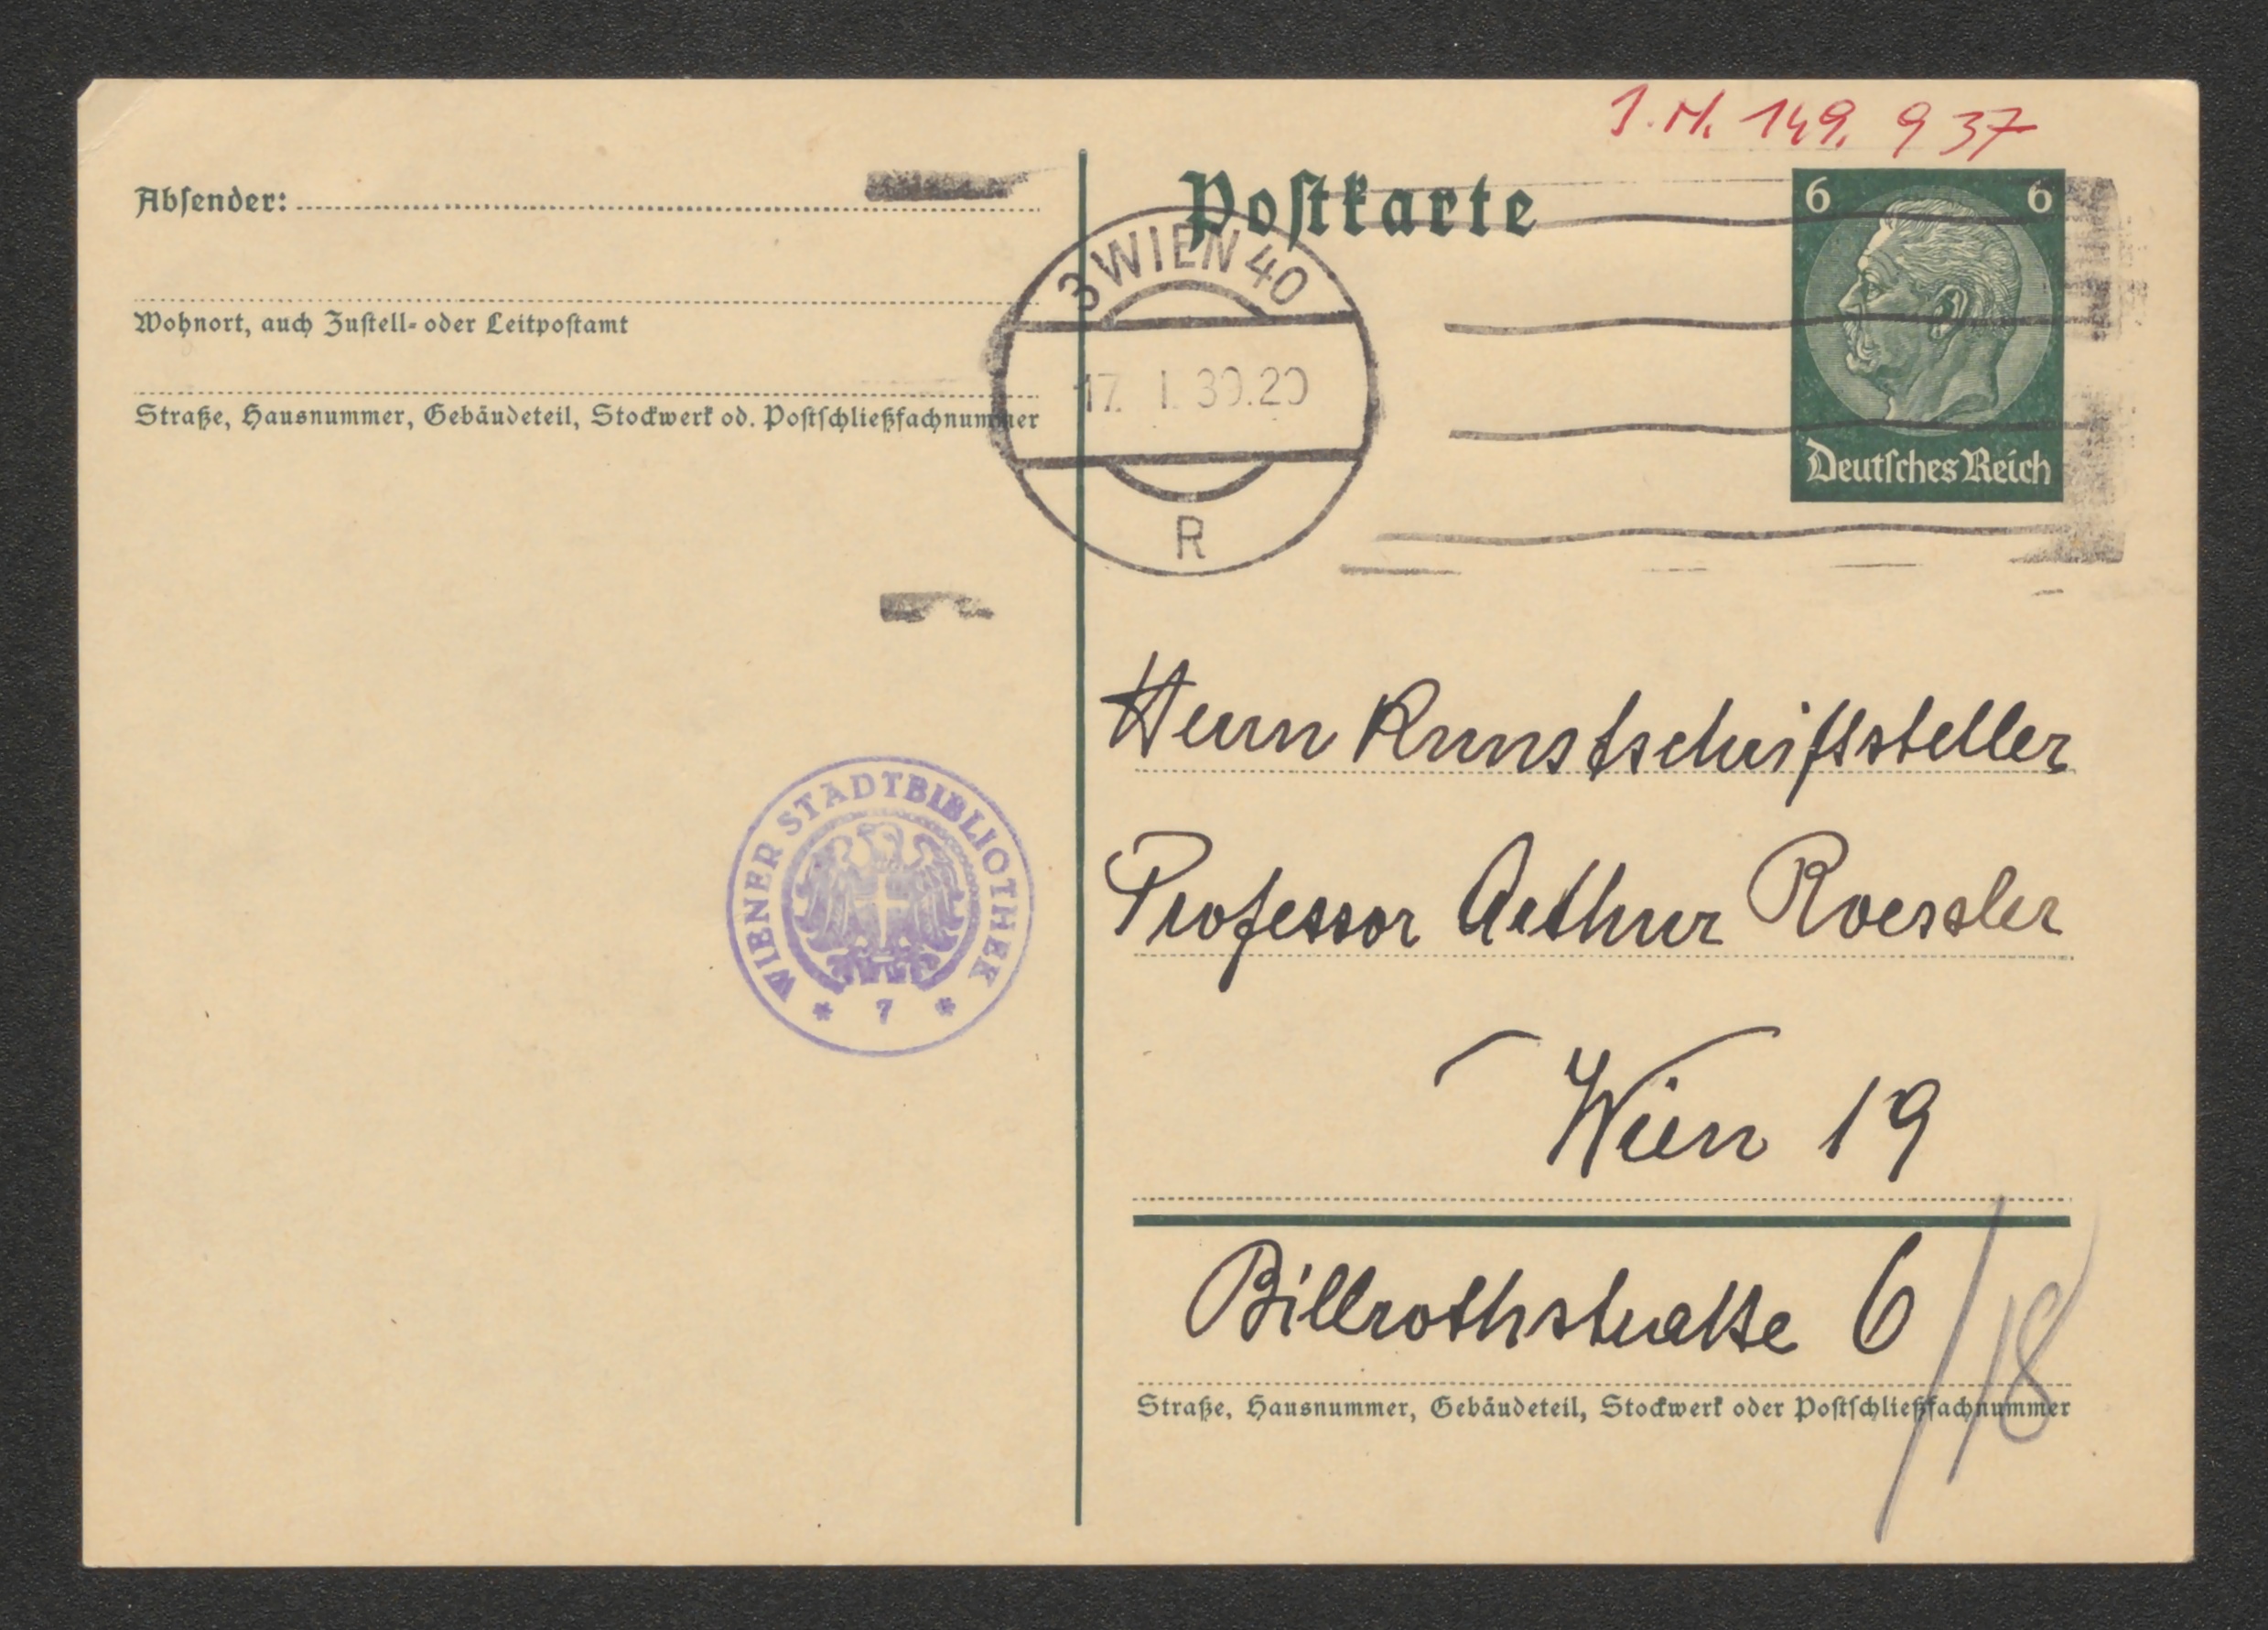 J.N. 149.937
Absender:
Wohnort, auch Zustell- oder Leitpostamt
Straße, Hausnummer, Gebäudeteil, Stockwerk od. Postschließfachnummer
Postkarte
3 WIEN 40
17. I. 39.20
R
6 6
Deutsches Reich
WIENER STADTBIBLIOTHEK
* 7 *
Herrn Kunstschriftsteller
Professor Arthur Roessler
Wien 19
Billrothstraße 6
/18
Straße, Hausnummer, Gebäudeteil, Stockwerk oder Postschließfachnummer